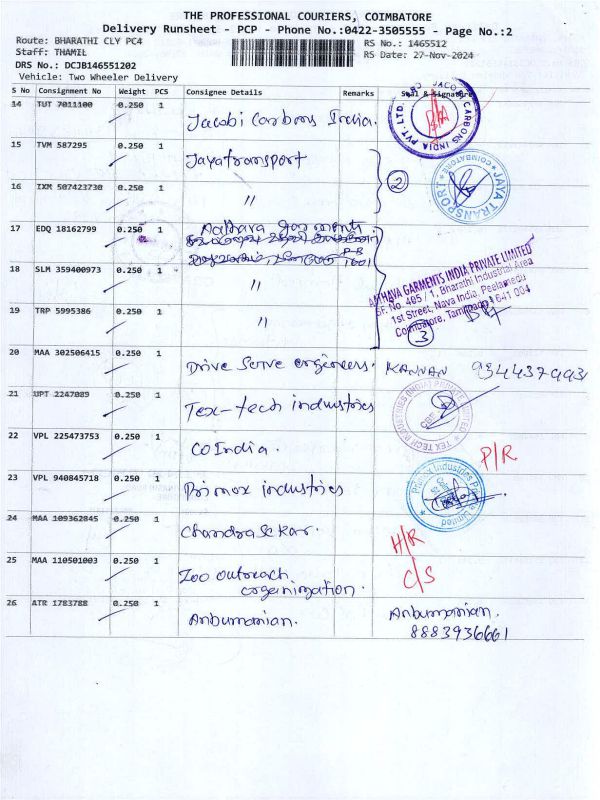 THE PROFESSIONAL COURIERS, COIMBATORE
Delivery Runsheet - PCP - Phone No.:0422-3505555 - Page No.:2
Route: BHARATHI CLY PC4 RS No.: 1465512
Staff: THAMIL RS Date: 27-Nov-2024
DRS No.: DCJB146551202
Vehicle: Two Wheeler Delivery
S No Consignment No Weight PCS Consignee Details Remarks Seal & Signature
14 TUT 7011100 0.250 1 Jacobi Carbons India.
JACOBI CARBONS INDIA PVT. LTD.
15 TVM 587295 0.250 1 Jayatransport
JAYA TRANSPORT COIMBATORE
16 IXM 507423730 0.250 1 "
2
17 EDQ 18162799 0.250 1 Aathava garments.
18 SLM 359400973 0.250 1 "
AATHAVA GARMENTS INDIA PRIVATE LIMITED
SF. No. 405 / 1, Bharathi Industrial Area
1st Street, Nava India, Peelamedu
Coimbatore, Tamilnadu - 641 004
19 TRP 5995386 0.250 1 "
3
20 MAA 302506415 0.250 1 Drive Serve engineers. KANNAN
21 UPT 2247089 0.250 1 Tex-tech industries
TEX TECH INDUSTRIES (INDIA) PRIVATE LIMITED
22 VPL 225473753 0.250 1 COIndia. P/R
23 VPL 940845718 0.250 1 Primox industries
Primox Industries Private Limited
24 MAA 109362845 0.250 1 Chandrasekar. H/R
25 MAA 110501003 0.250 1 Zoo outreach C/S
organimation.
26 ATR 1783788 0.250 1 Anbumanian. Anbumanian.
8883936661